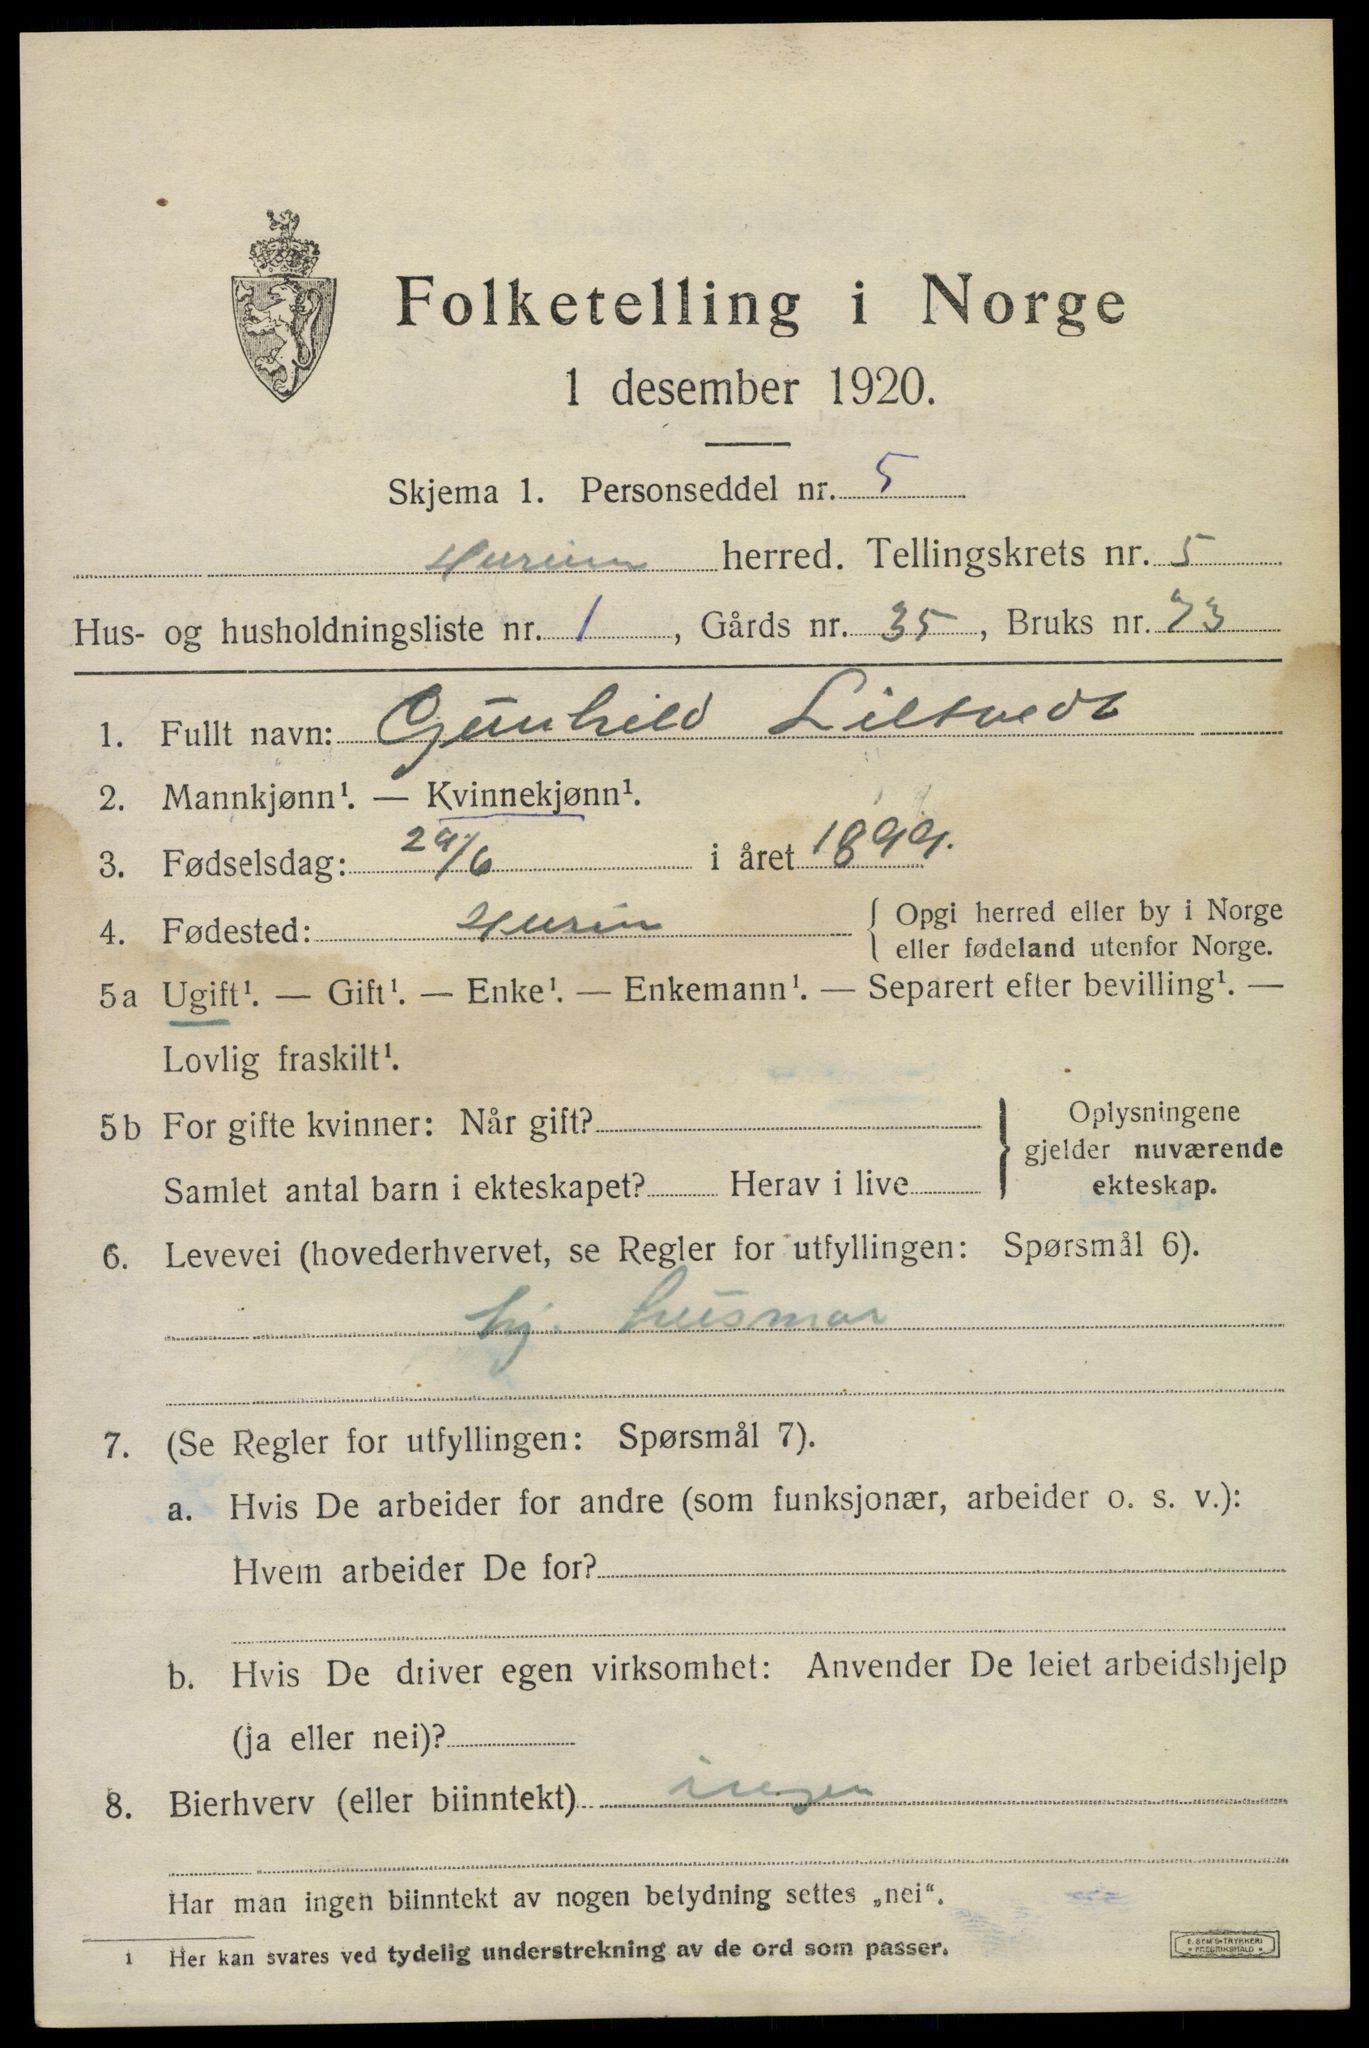 Folketelling i Norge
1 desember 1920.
Skjema 1. Personseddel nr. 5
Hurum herred. Tellingskrets nr. 5
Hus- og husholdningsliste nr. 1, Gårds nr. 35, Bruks nr. 73
1. Fullt navn: Gunhild Liltvedt
2. Mannkjønn¹. — Kvinnekjønn¹.
3. Fødselsdag: 29/6 i året 1899.
4. Fødested: Hurum { Opgi herred eller by i Norge
eller fødeland utenfor Norge.
5a Ugift¹. — Gift¹. — Enke¹. — Enkemann¹. — Separert efter bevilling¹. —
Lovlig fraskilt¹.
5b For gifte kvinner: Når gift?
Samlet antal barn i ekteskapet? Herav i live
} Oplysningene
gjelder nuværende
ekteskap.
6. Levevei (hovederhvervet, se Regler for utfyllingen: Spørsmål 6).
hj. husmor
7. (Se Regler for utfyllingen: Spørsmål 7).
a. Hvis De arbeider for andre (som funksjonær, arbeider o. s. v.):
Hvem arbeider De for?
b. Hvis De driver egen virksomhet: Anvender De leiet arbeidshjelp
(ja eller nei)?
8. Bierhverv (eller biinntekt) ingen
Har man ingen biinntekt av nogen betydning settes „nei“.
1 Her kan svares ved tydelig understrekning av de ord som passer.
E. SEM'S TRYKKERI
• FREDRIKSHALD •